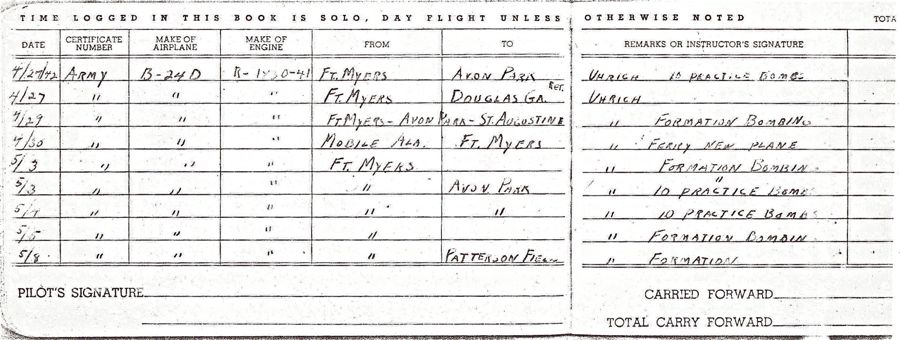 TIME LOGGED IN THIS BOOK IS SOLO, DAY FLIGHT UNLESS OTHERWISE NOTED TOTA
DATE CERTIFICATE NUMBER MAKE OF AIRPLANE MAKE OF ENGINE FROM TO REMARKS OR INSTRUCTOR'S SIGNATURE
4/27/42 ARMY B-24D R-1830-41 FT. MYERS AVON PARK UHRICH 10 PRACTICE BOMBS
4/27 " " " FT. MYERS DOUGLAS GA. RET. UHRICH
4/29 " " " FT MYERS - AVON PARK - ST. AUGUSTINE " FORMATION BOMBING
4/30 " " " MOBILE ALA. FT. MYERS " FERRY NEW PLANE
5/3 " " " FT. MYERS " FORMATION BOMBIN
5/3 " " " " AVON PARK " " 10 PRACTICE BOMB
" " " " " " 10 PRACTICE BOMBS
5/5 " " " " " FORMATION BOMBIN
5/8 " " " " PATTERSON FIELD " FORMATION
PILOT'S SIGNATURE CARRIED FORWARD
TOTAL CARRY FORWARD